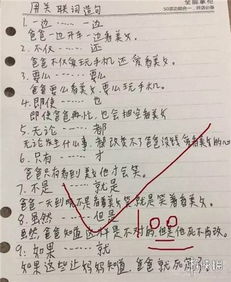 用关联词造句
1.一边……一边
爸爸一边开车一边看美女。
2.不仅……还
爸爸不仅每天玩手机还爱看美女。
3.要么……要么
爸爸要么看美女,要么玩手机。
4.即使……也
即使爸爸再忙,也会把手看美女
5.无论……都
无论发生什么事,都改变不了爸爸没钱会看美女的心
6.只有……才
爸爸只有看到美女他才会笑。
7.不是……就是
爸爸一天到晚不是看着美女就是笑着看美女
8.虽然……但是
虽然,爸爸知道这样是不对的,但是他死不悔改。
9.如果……就
如果这些让妈妈知道,爸爸就死
100